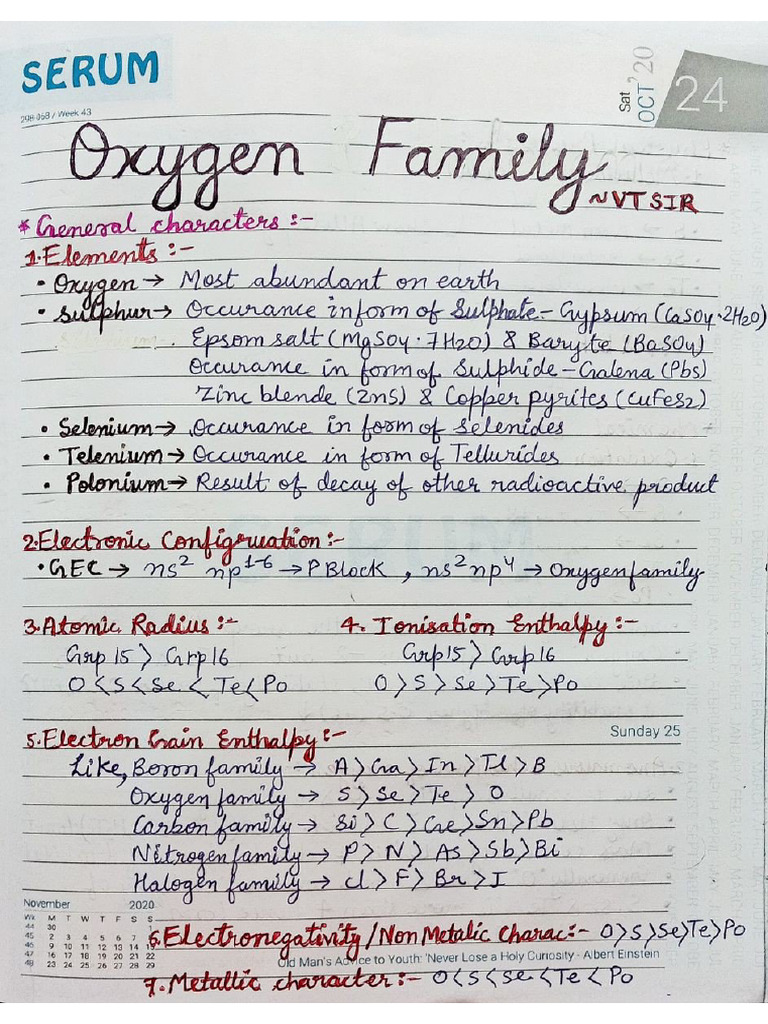 SERUM
298-068 / Week 43
Sat
OCT '20
24
Oxygen Family
~NVT SIR
* General characters :-
1. Elements :-
• Oxygen → Most abundant on earth
• Sulphur → Occurance in form of Sulphate - Gypsum (CaSO4·2H2O)
Epsom salt (MgSO4·7H2O) & Baryte (BaSO4)
Occurance in form of Sulphide - Galena (Pbs)
Zinc blende (ZnS) & Copper pyrites (CuFeS2)
• Selenium → Occurance in form of Selenides
• Telenium → Occurance in form of Tellurides
• Polonium → Result of decay of other radioactive product
2. Electronic Configuration :-
• GEC → ns2 np1-6 → P Block , ns2 np4 → Oxygen family
3. Atomic Radius :- 4. Ionisation Enthalpy :-
Grp 15 > Grp 16 Grp 15 > Grp 16
O < S < Se < Te < Po O > S > Se > Te > Po
5. Electron Gain Enthalpy :- Sunday 25
Like, Boron family → A > Ga > In > Tl > B
Oxygen family → S > Se > Te > O
Carbon family → Si > C > Ge > Sn > Pb
Nitrogen family → P > N > As > Sb > Bi
Halogen family → Cl > F > Br > I
November 2020
Wk M T W T F S S
44 30 1
45 2 3 4 5 6 7
46 9 10 11 12 13 14 15
47 16 17 18 19 20 21 22
48 23 24 25 26 27 28 29
6. Electronegativity / Non Metalic Charac :- O > S > Se > Te > Po
Old Man's Advice to Youth: 'Never Lose a Holy Curiosity - Albert Einstein
7. Metallic character :- O < S < Se < Te < Po